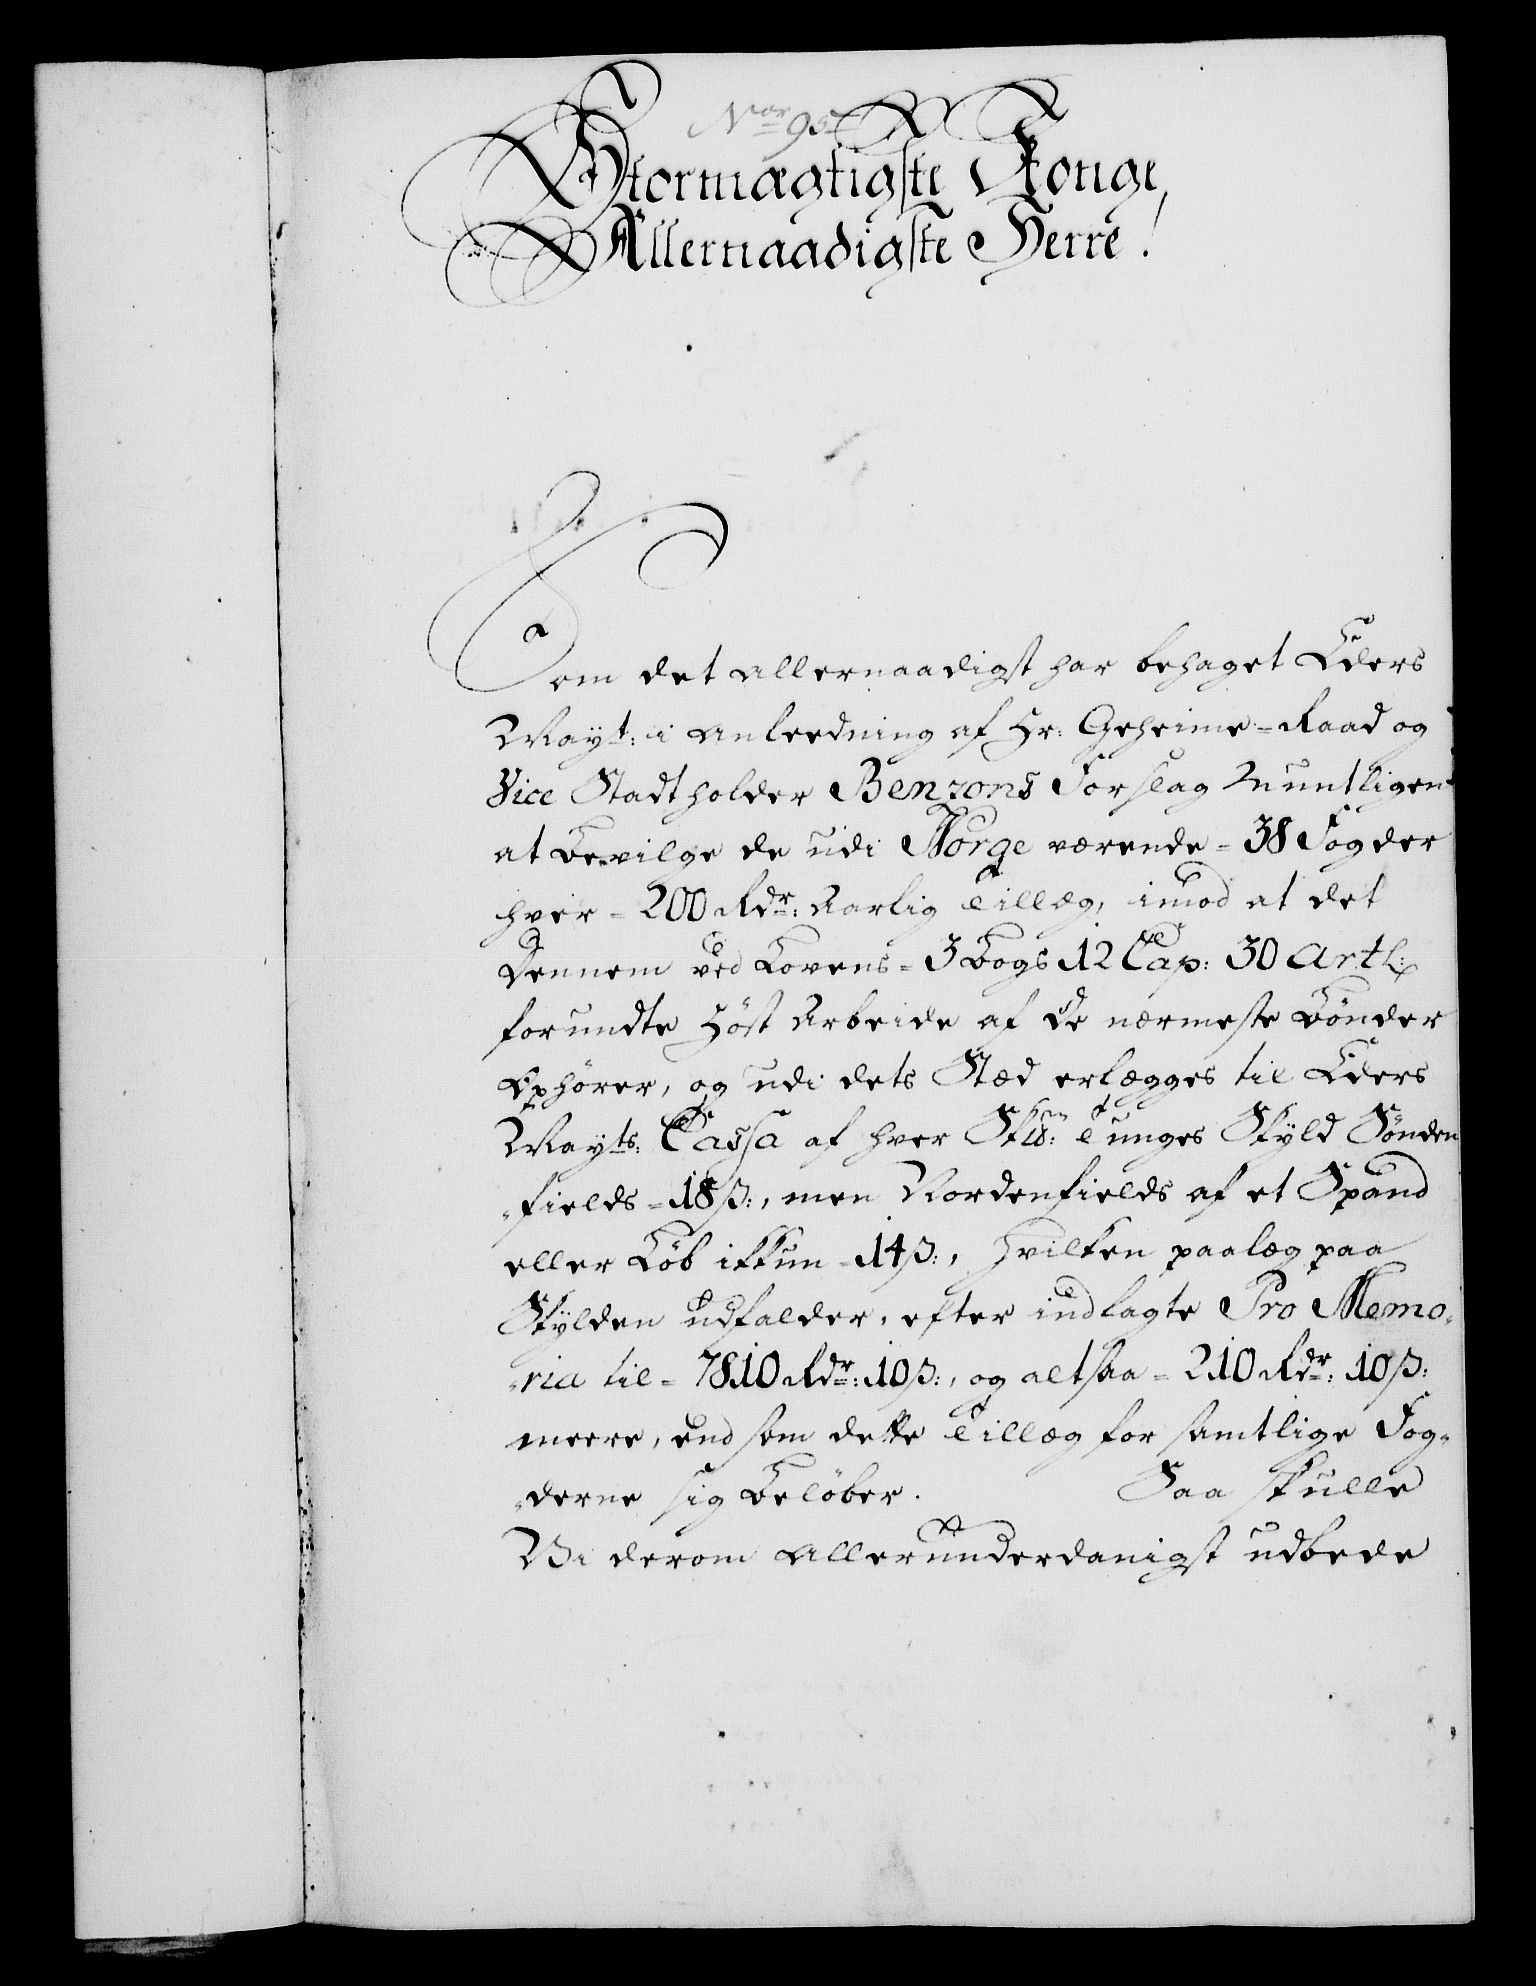 No 95
Stormægtigste Konge,
Allernaadigste Herre!
Som det allernaadigst har behaget Eders
Mayt: i anleedning af Hr: Geheime-Raad og
Vice Stadtholder Benzons Forslag Muntligen
at bevilge de udi Norge værende - 38 Fogder
hver - 200 Rdr: Aarlig Tillæg, imod at det
Dennem ved Lovens - 3 Bogs 12 Cap: 30 Artl:
forundte Höst Arbeide af de nærmeste Bönder
Ophører, og udi dets Stæd erlægges til Eders
Mayts: Cassa af hver Skis: Tunges Skyld Sönden
fields - 18 ß:, men Nordenfields af et Spand
eller Löb ikkun - 14 ß:, Hvilken paalæg paa
Skylden udfalder, efter indlagte Pro Memo-
ria til - 7810 Rdr: 10 ß:, og altsaa - 210 Rdr: 10 ß:
meere, end som dette Tillæg for samtlige Fog-
derne sig Belöber. Saa skulle
Vi derom allerunderdanigst udbede